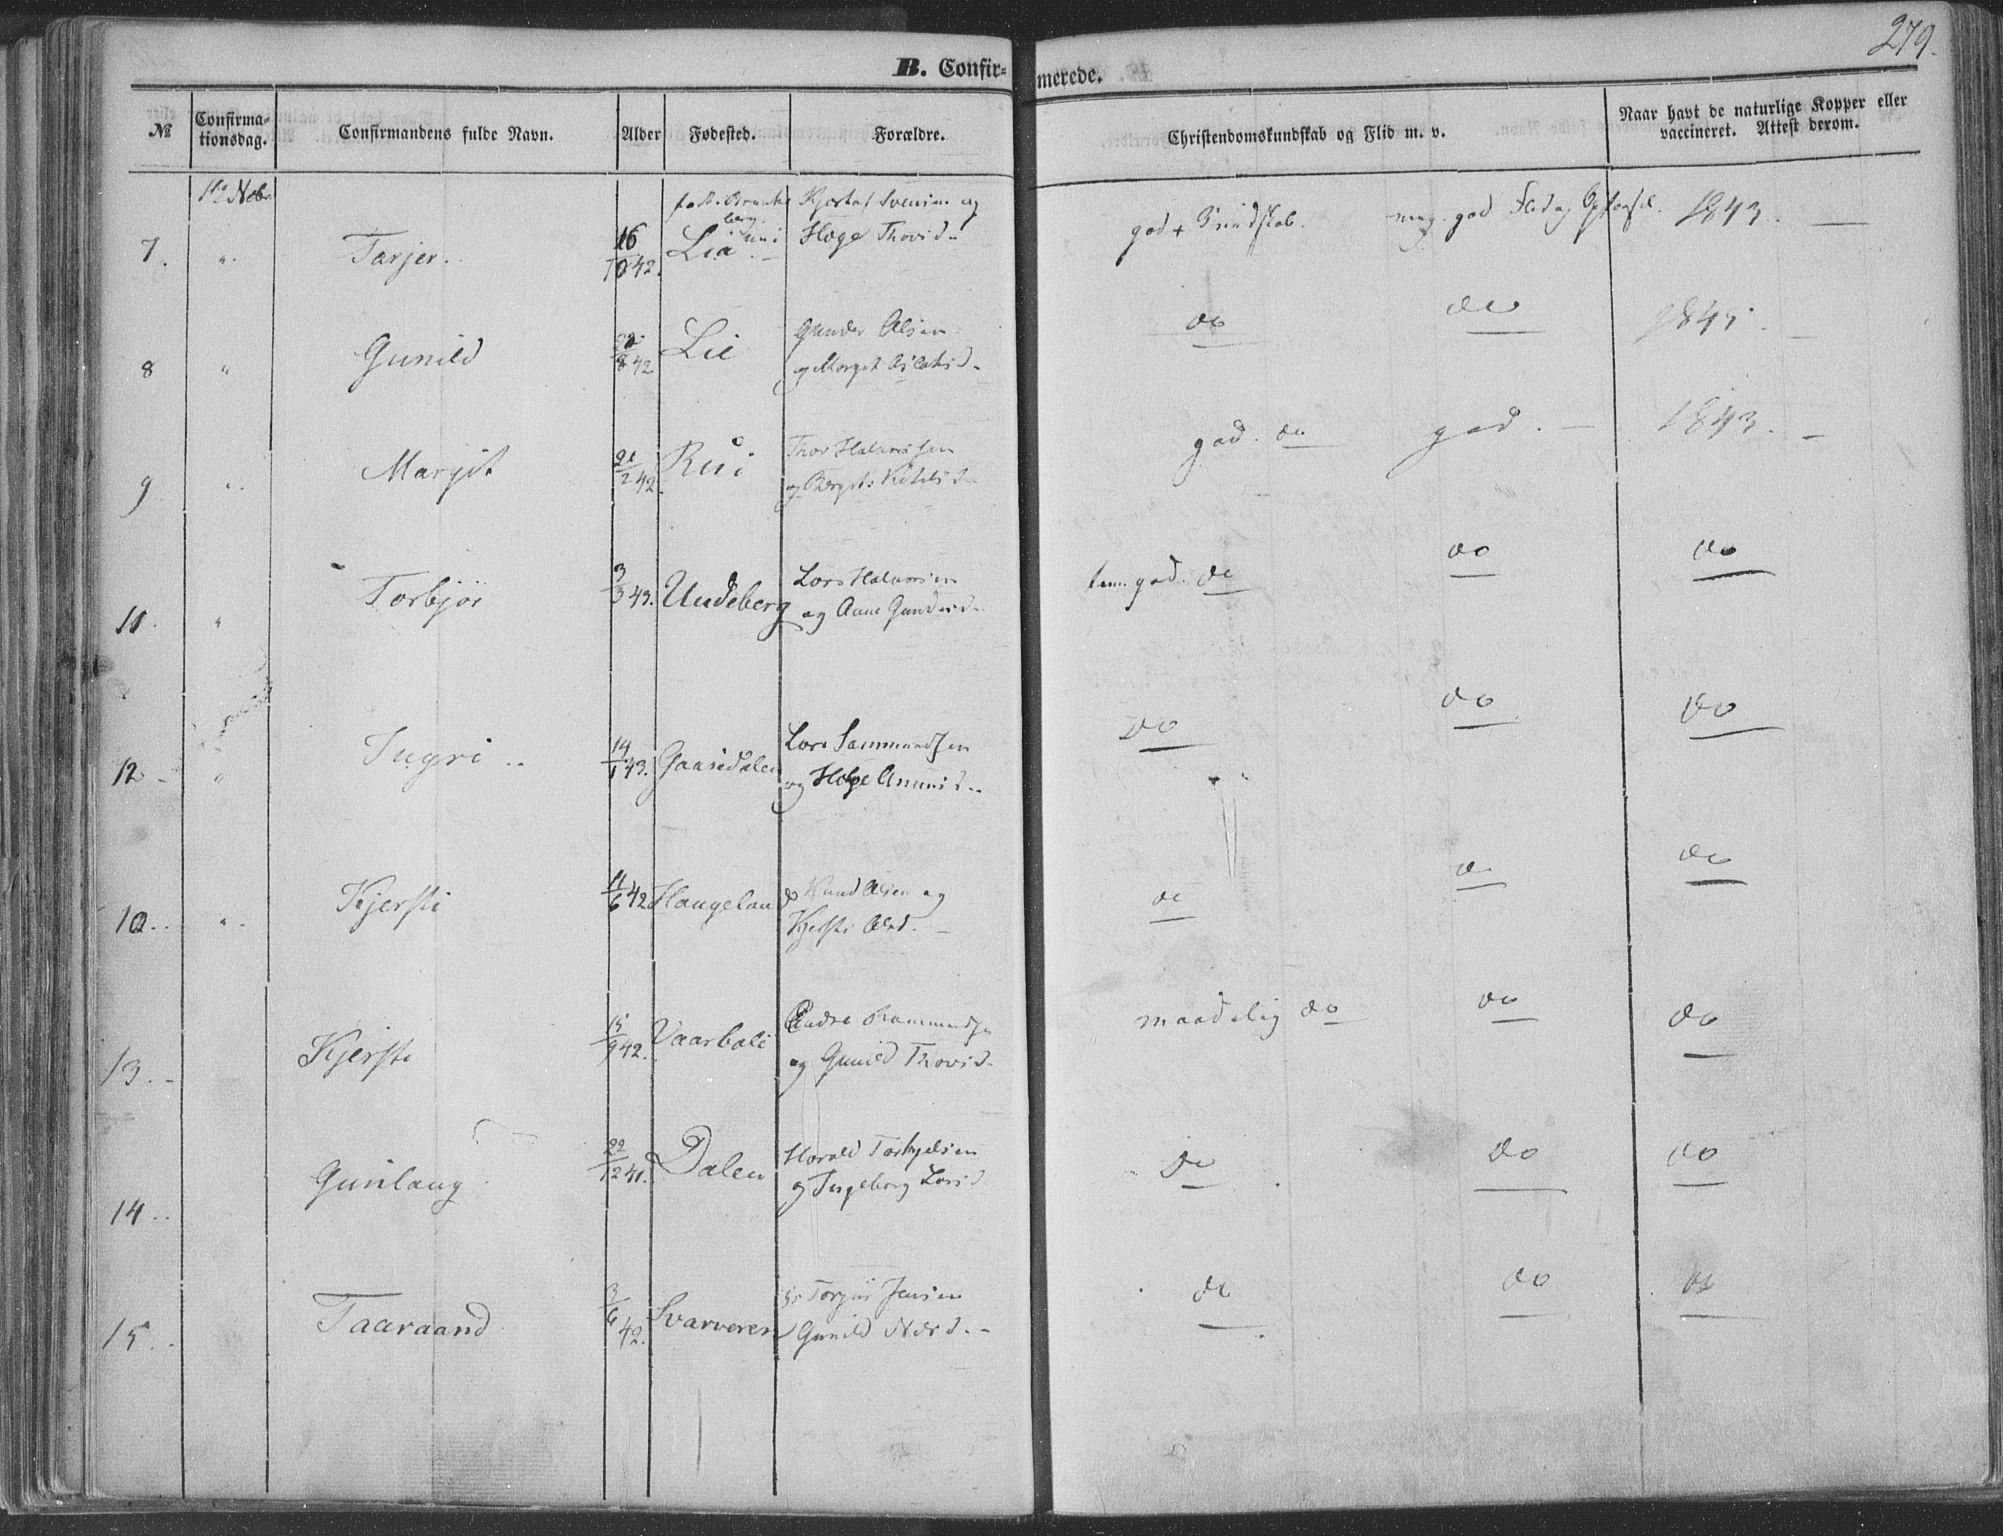 279.
B. Confirmerede.
№ Confirmationsdag. Confirmandens fulde Navn. Alder Fødested. Forældre. Christendomskundskab og Flid m. v. Naar havt de naturlige Kopper eller vaccineret. Attest derom.
7. " Tarjer. 16/10 42. Lia Kjøstol Svensen og
Hæge Thovsd. god Kundskab. meg. god Flid og 1843. —
8 " Gunild 8 42 Lie Gunder Olsen
og Margit Aslaksd. do do 1845. —
9 " Margit 21/2 42 Rui Thov Halvorsen
og Berget Kittelsd. god. do god. — 1843. —
11. " Torbjør 3/3 43. Undeberg Lars Halvorsen
og Anne Gundersd. tem. god. do do do
12 - " Ingri .. 14/1 43. Gaasedalen Lars Sammundsen
og Hæge Amunds d. do do do
10.. " Kjersti 11/6 42 Haugeland Knud Olsen og
Kjersti Olsd. — do do do
13. - Kjersti 15/9 42. Vaarbali Endre Rommundsen
og Gunild Thovsd. maadelig do do do
14.. Gunlaug 22/12 41. Dalen Harald Torkjelsen
og Ingeborg Larsd do do do
15.. Taaraand 3/6 42. Svarveren Torgus Jensen
Gunild Nersd. - do do do